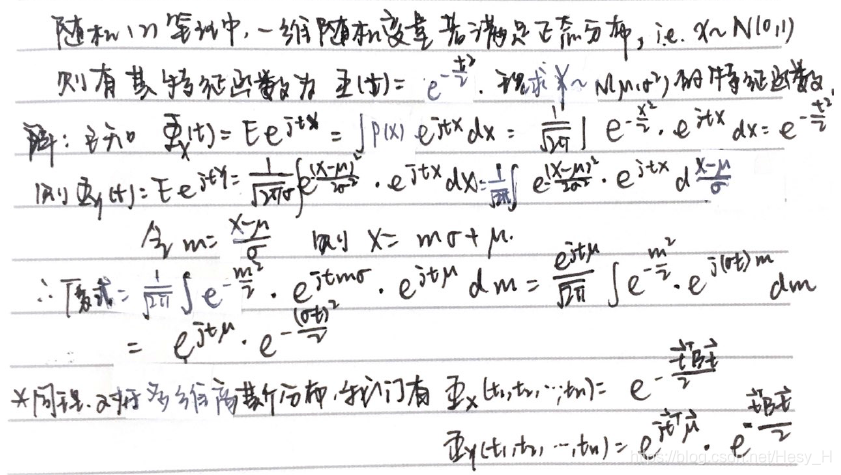 随机(1)笔记中,一维随机变量若满足正态分布,i.e. X~N(0,1)
则有其特征函数为 Φ(t)= e^{-t²/2}. 现求Y~N(μ,σ²)的特征函数.
解:已知 Φ_X(t)= E e^{jtX} = ∫p(x) e^{jtx}dx = 1/√(2π) ∫ e^{-x²/2}·e^{jtx} dx = e^{-t²/2}
则Φ_Y(t)= E e^{jtY} = 1/(√(2π)σ) ∫e^{-(x-μ)²/2σ²}·e^{jtx}dx = 1/√(2π) ∫ e^{-(x-μ)²/2σ²}·e^{jtx} d (x-μ)/σ
令 m= (x-μ)/σ 则 x= mσ+μ.
∴原式= 1/√(2π) ∫ e^{-m²/2}·e^{jtmσ}·e^{jtμ} dm = e^{jtμ}/√(2π) ∫e^{-m²/2}·e^{j(σt)m} dm
= e^{jtμ}·e^{-(σt)²/2}
*同理.对于多维高斯分布,我们有 Φ_X(t₁,t₂,…,tn)= e^{-t⃗ᵀBt⃗/2}
Φ_Y(t₁,t₂,…,tn)= e^{jt⃗ᵀμ⃗}·e^{-t⃗ᵀBt⃗/2}
https://blog.csdn.net/Hesy_H